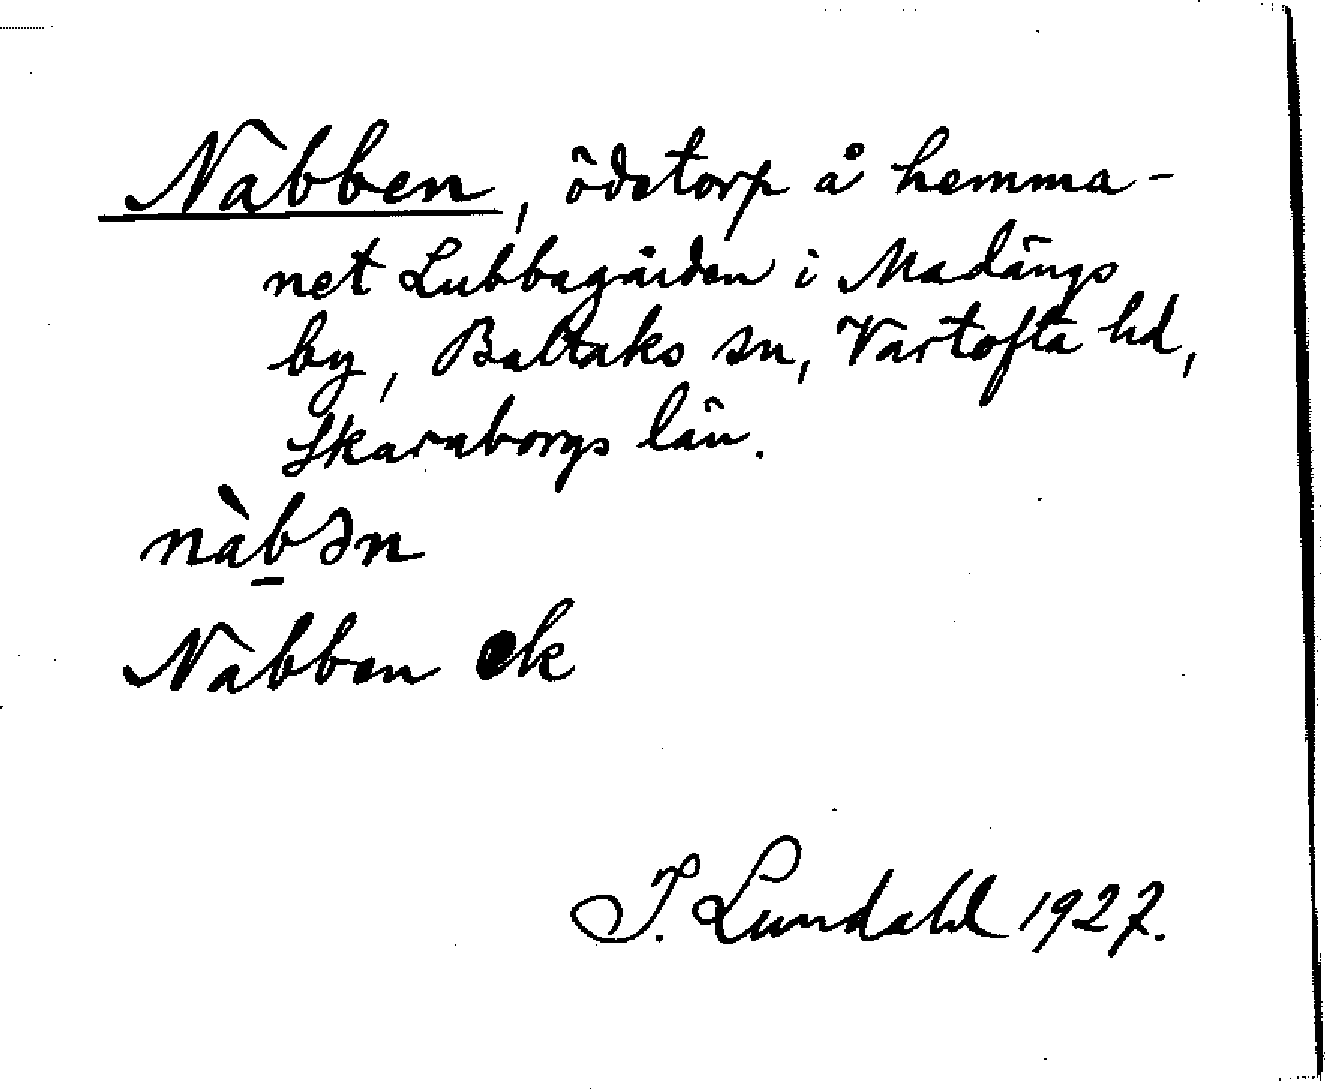 Nabben, ödetorp å hemma-
net Lubbagården i Madängs
by, Baltaks sn, Vartofta hd,
Skaraborgs län.
nàb̲ən
Nabben ek
I. Lundahl 1927.